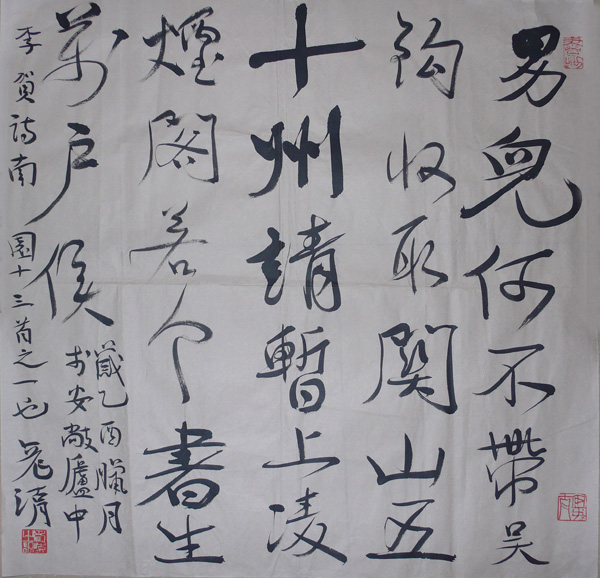 男兒何不帶吳
鈎收取關山五
十州請暫上凌
煙閣若个書生
萬戶侯
李賀詩南園十三首之一也
歲乙酉臘月
於安敞廬中